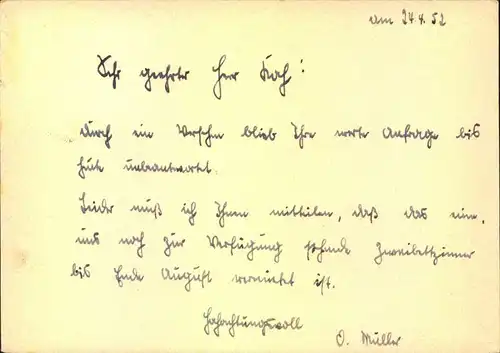 am 24.4.52
Sehr geehrter Herr Koch!
durch ein Versehn blieb Ihre werte Anfrage bis
heute unbeantwortet.
Leider muß ich Ihnen mitteilen, daß das eine,
uns noch zur Verfügung stehende Zweibettzimmer
bis Ende August vermietet ist.
Hochachtungsvoll
O. Müller